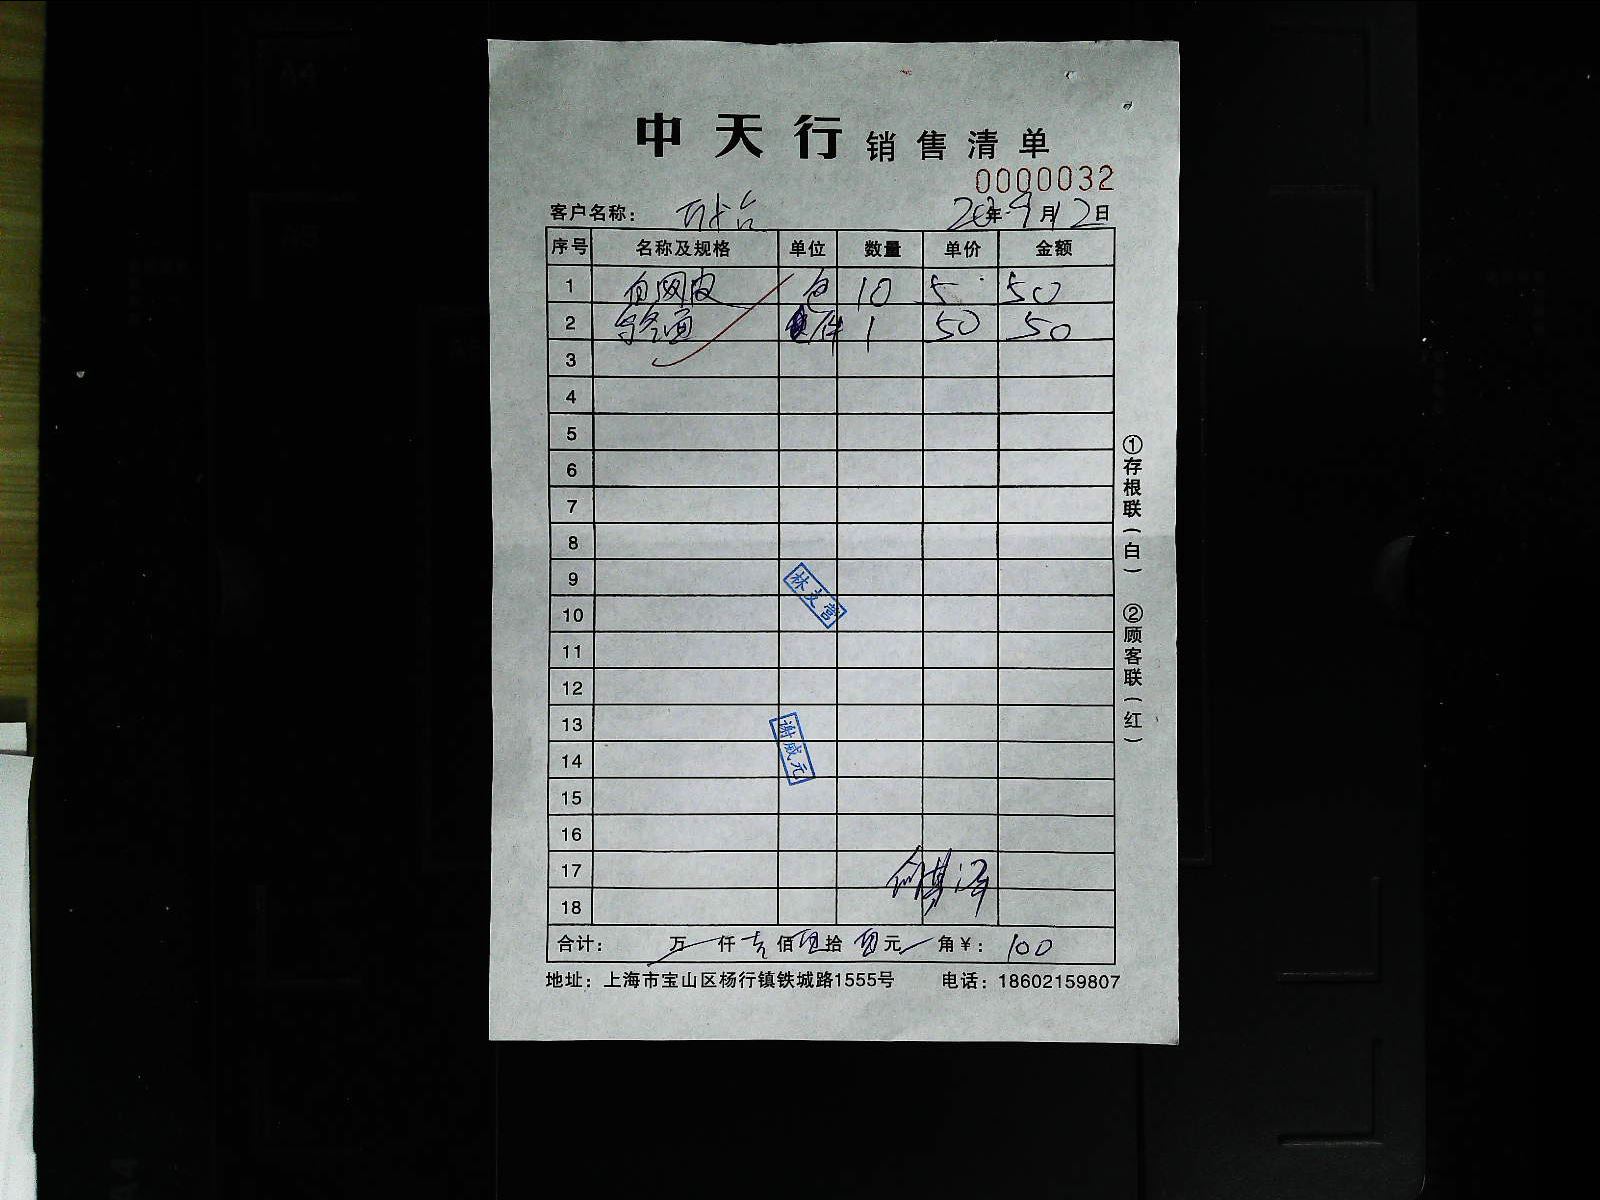 中天行 销售清单
0000032
客户名称：
年 9月12日
序号 名称及规格 单位 数量 单价 金额
1 白网皮 包 10 5 50
2 件 1 50 50
3
4
5
6
7
8
9
10
11
12
13
14
15
16
17
18
林文营
谢威元
合计： 万 仟 佰 拾 元 角￥：100
地址：上海市宝山区杨行镇铁城路1555号 电话：18602159807
①存根联（白） ②顾客联（红）